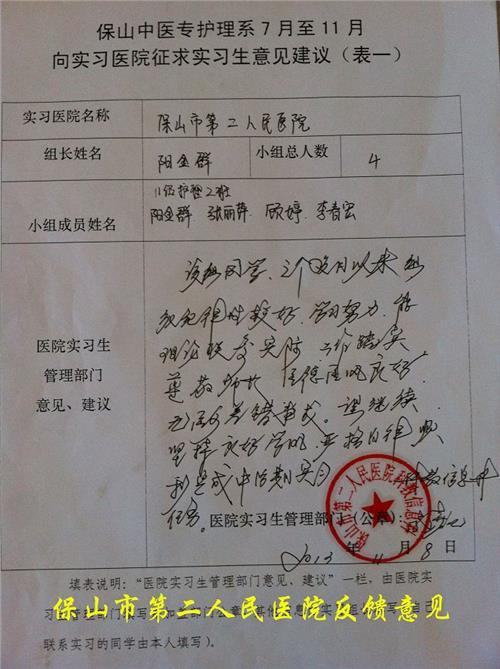 保山中医专护理系7月至11月
向实习医院征求实习生意见建议（表一）
实习医院名称
保山市第二人民医院
组长姓名
阳金群
小组总人数
4
小组成员姓名
11级护理2班
阳金群 张丽萍 顾婷 李春宏
医院实习生
管理部门
意见、建议
该组同学，三个多月以来组
织纪律性较好，学习努力，能
理论联系实际，工作踏实
尊敬师长，医德医风良好
无医疗差错事故。望继续
坚持良好学风，严格自律，顺
利完成中后期实习
任务。
医院实习生管理部门（公章）：
保山市第二人民医院科教信息科
2013年11月8日
填表说明：“医院实习生管理部门意见、建议”一栏，由医院实
保山市第二人民医院反馈意见
联系实习的同学由本人填写）。